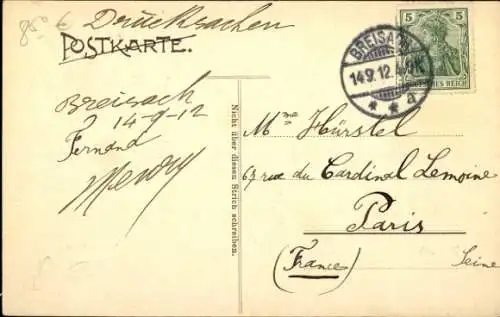 850 €
Drucksachen
POSTKARTE.
BREISACH
14.9.12.
a
5 5
DEUTSCHES REICH
Breisach
14-9-12
Fernand
Nicht über diesen Strich schreiben.
Mme Hürstel
67 rue du Cardinal Lemoine
Paris
(France) Seine